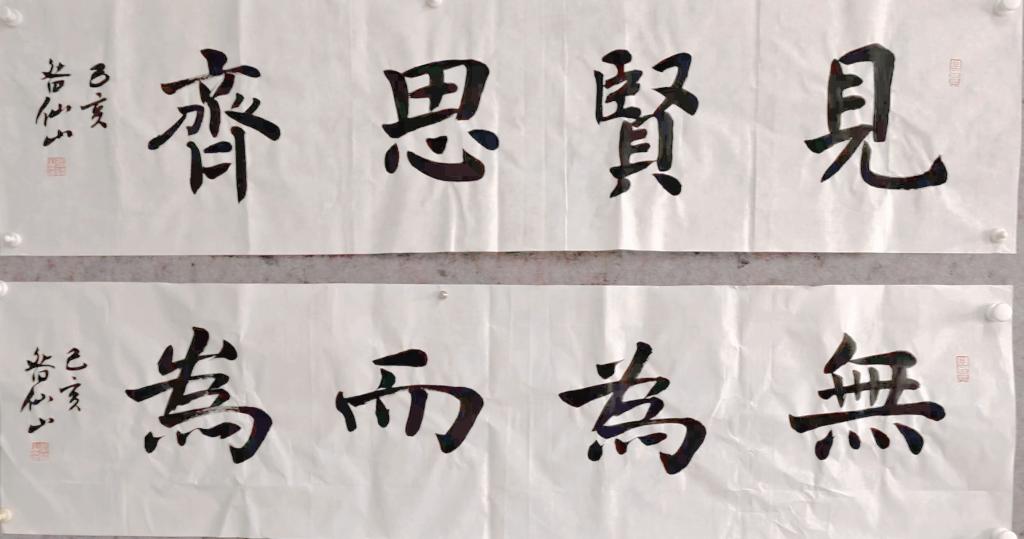 見賢思齊
己亥
仙山
無為而為
己亥
仙山